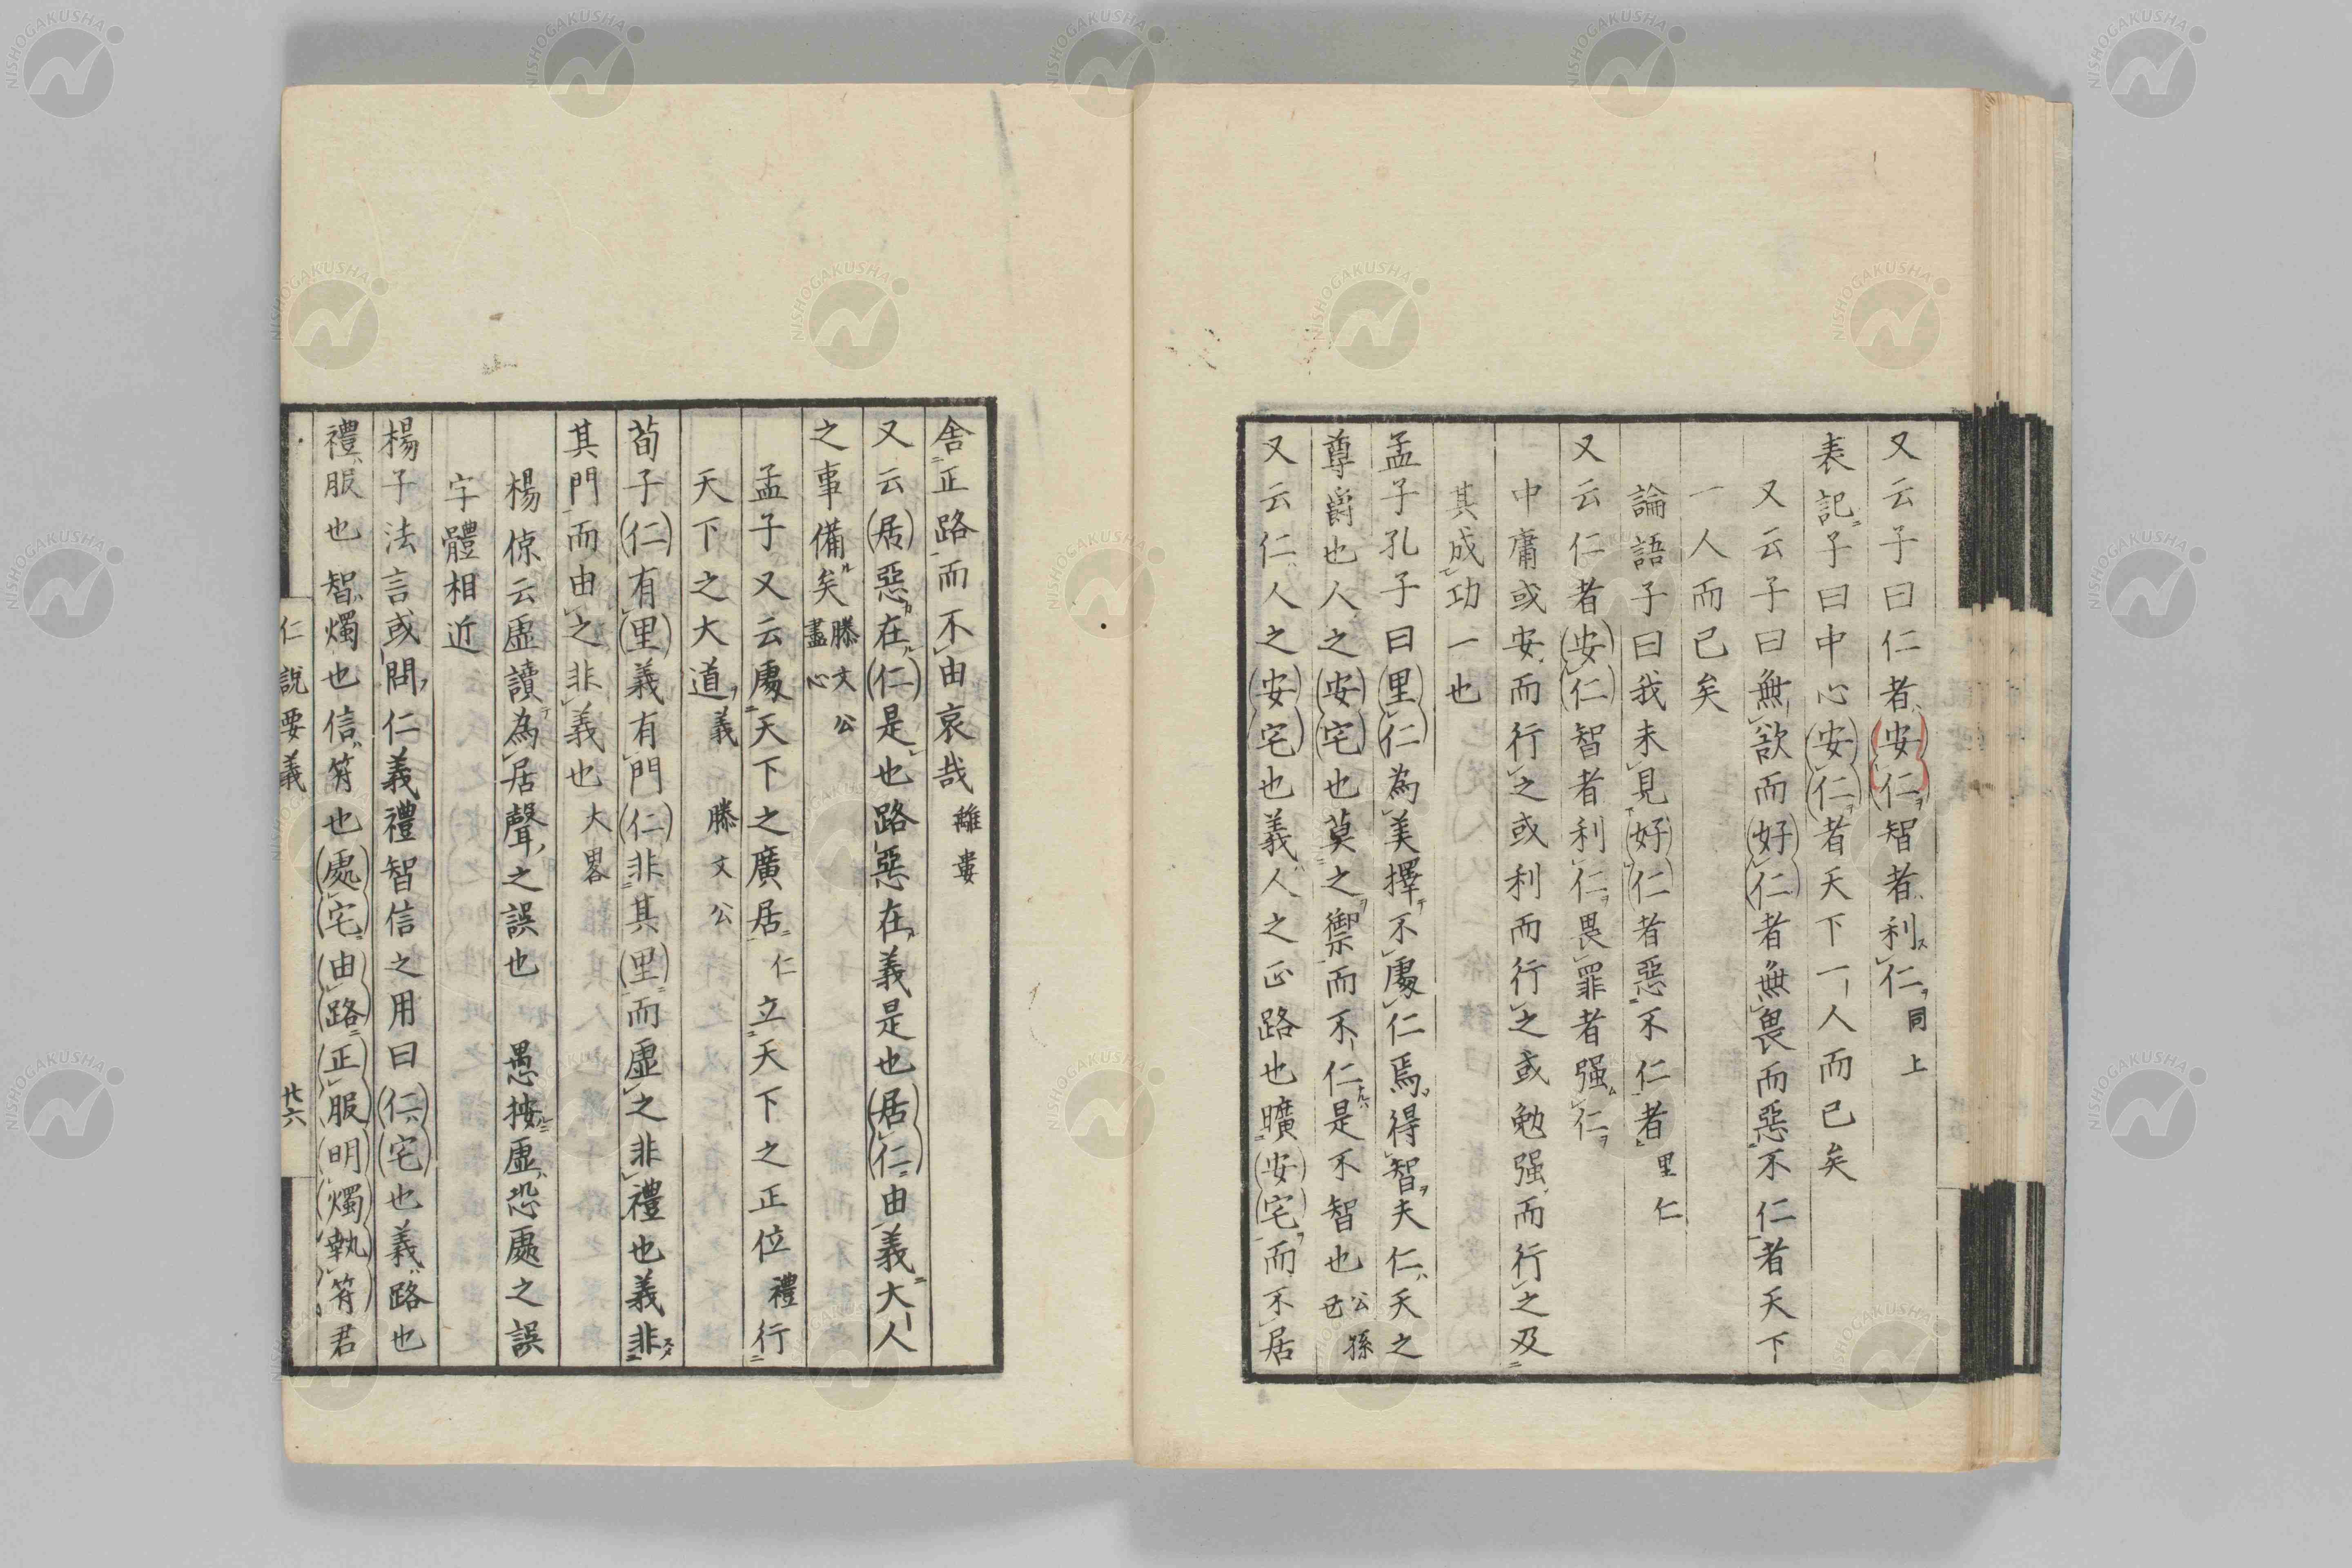 又云子曰仁者安仁智者利仁同上
表記子曰中心安仁者天下一人而已矣
又云子曰無欲而好仁者無畏而惡不仁者天下
一人而已矣
論語子曰我未見好仁者惡不仁者里仁
又云仁者安仁智者利仁畏罪者强仁
中庸或安而行之或利而行之或勉强而行之及
其成功一也
孟子孔子曰里仁為美擇不處仁焉得智夫仁天之
尊爵也人之安宅也莫之禦而不仁是不智也公孫丑
又云仁人之安宅也義人之正路也曠安宅而不居
舍正路而不由哀哉離婁
又云居惡在仁是也路惡在義是也居仁由義大人
之事備矣滕文公盡心
孟子又云處天下之廣居仁立天下之正位禮行
天下之大道義滕文公
荀子仁有里義有門仁非其里而虛之非禮也義非
其門而由之非義也大畧
楊倞云虛讀為居聲之誤也愚按虛恐處之誤
字體相近
楊子法言或問仁義禮智信之用曰仁宅也義路也
禮服也智燭也信符也處宅由路正服明燭執符君
仁說要義
廿六
NISHOGAKUSHA